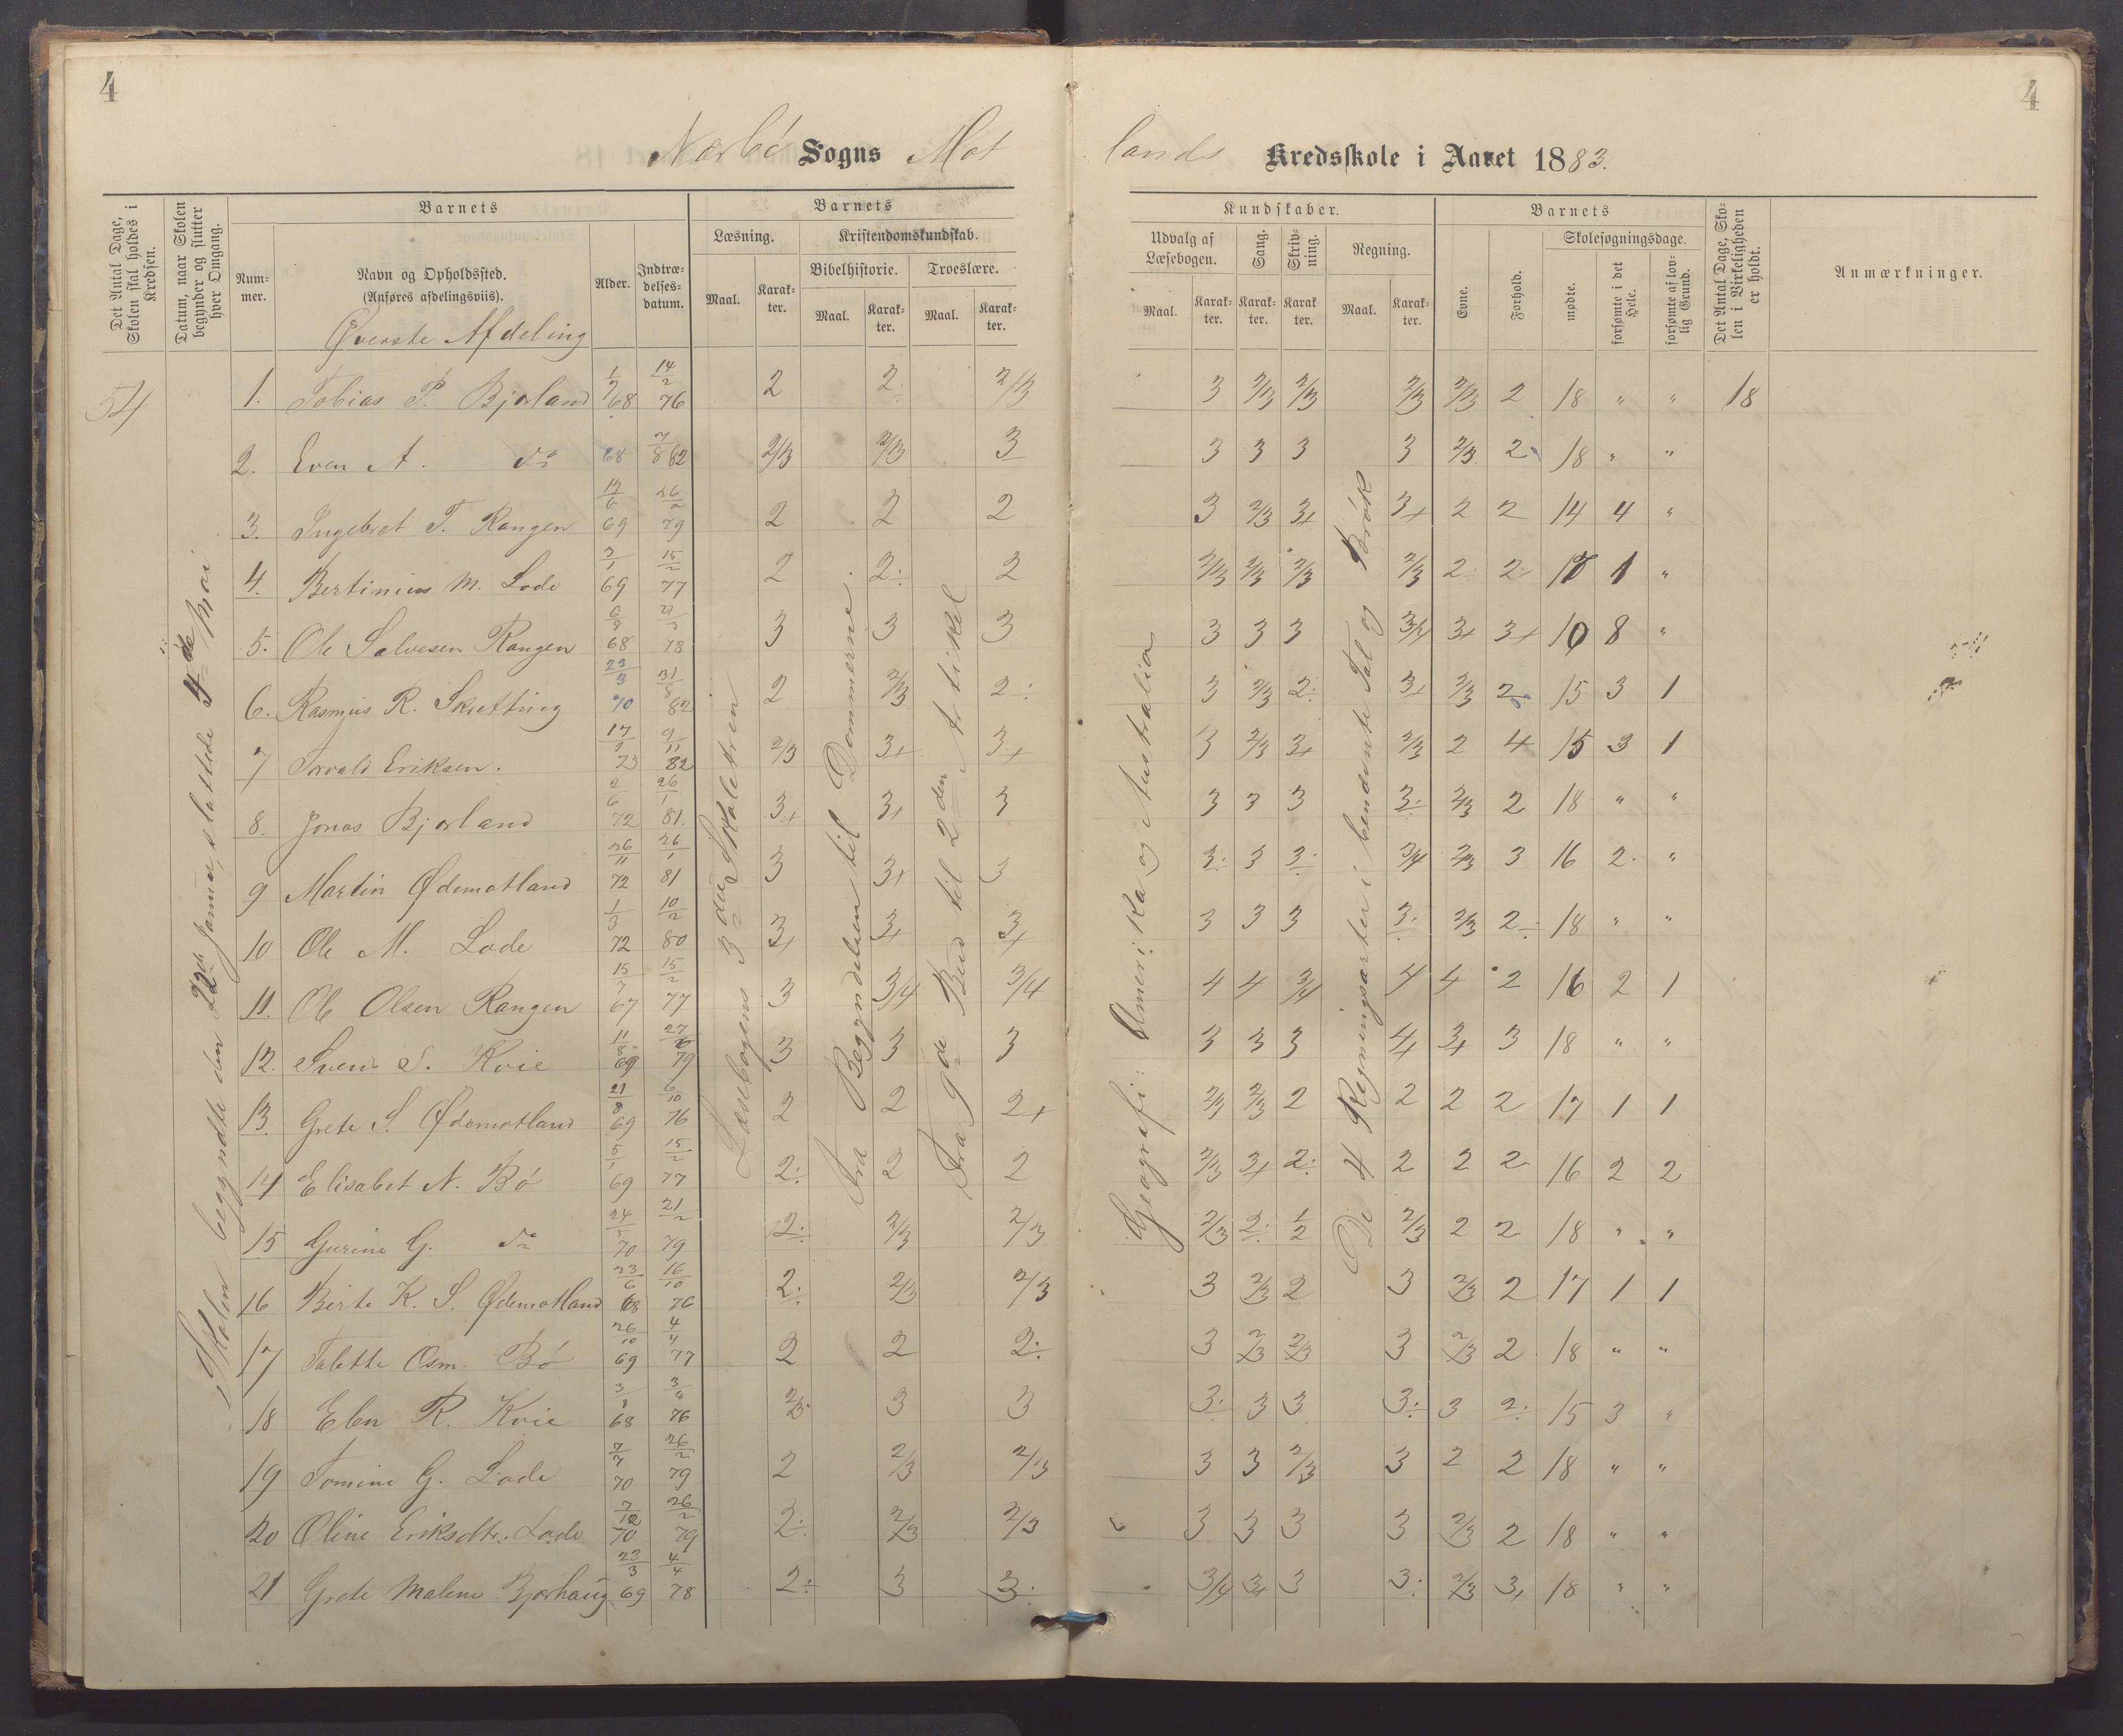 4
4
Nærbö Sogns Mot
lands Kredsskole i Aaret 1883.
Det Antal Dage, Skolen skal holdes i Kredsen.
Datum, naar Skolen begynder og slutter hver Omgang.
Barnets
Barnets
Kundskaber.
Barnets
Det Antal Dage, Skolen i Virkeligheden er holdt.
Anmærkninger.
Num-mer.
Navn og Opholdssted.
(Anføres afdelingsviis).
Alder.
Indtræ-delses-datum.
Læsning.
Kristendomskundskab.
Bibelhistorie.
Troeslære.
Maal.
Karak-ter.
Maal.
Karak-ter.
Maal.
Karak-ter.
Udvalg af Læsebogen.
Sang.
Skriv-ning.
Regning.
Maal.
Karak-ter.
Karak-ter.
Karak-ter.
Maal.
Karak-ter.
Evne.
Forhold.
Skolesøgningsdage.
mødte.
forsømte i det Hele.
forsømte af lov-lig Grund.
Øverste Afdeling
54
Skolen begyndte den 22de Januar, sluttede 4de Mai
Læsebogens 3die Skoletrin
Fra Begyndelsen til Dommerne.
Fra 9de Bud til 2den Artikel
Geografi: Amerika og Australia
De 4 Regningsarter i benævnte Tal og Brök
1. Tobias P. Bjorland 1/7 68 14/2 76 2 2: 2/3 3 2/3 2/3 2/3 2/3 2 18 " " 18
2. Even A. do 68 7/8 82 2/3 2/3 3 3 3 3 3 2/3 2 18 " "
3. Ingebret T. Rangen 69 79 2 2 2 3 2/3 3+ 3+ 2 2 14 4 "
4. Bertinius M. Lode 69 15/2 77 2 2: 2 2/3 2/3 2/3 2/3 2: 2 17 1 "
5. Ole Salvesen Rangen 6/8 68 3 3 3 3 3 3 3/4 3+ 3+ 10 8 "
6. Rasmus R. Skretting 23/3 70 31/8 82 2 2/3 2: 3 2/3 2: 3+ 2/3 2 15 3 1
7 Torvald Eriksen. 73 9/11 82 2/3 3+ 3+ 3 2/3 3+ 2/3 2 4 15 3 1
8. Jonas Bjorland 2/6 72 26/1 81. 3+ 3+ 3 3 3 3 3: 2/3 2 18 " "
9 Martin Ødemotland 26/11 72 26/1 81 3 3+ 3 3: 3 3: 3/4 2/3 3 16 2 "
10 Ole M. Lode 1/3 72 10/2 80 3+ 3+ 3+ 3 3 3 3: 2/3 2: 18 " "
11. Ole Olsen Rangen 15/7 67 15/2 77 3 3/4 3/4 4 4 3/4 4 4 2 16 2 1
12. Svend S. Kvie 11/8 69 79 3 3 3 3 3 3 4+ 3+ 3 18 " "
13. Grete S. Ødemotland 21/8 69 6/10 76 2 2 2+ 2/3 2/3 2 2 2 2 17 1 1
14 Elisabet N. Bö 5/1 69 15/2 77 2: 2 2 2/3 3+ 2: 2 2 2 16 2 2
15 Gurine G. do 24/5 70 21/2 79 2: 2/3 2/3 2/3 2: 1/2 2/3 2 2 18 " "
16 Birte K. S. Ødemotland 23/6 68 16/10 76 2: 2/3 2/3 3 2/3 2 3 2/3 2 17 1 1
17 Talette Osm. Bö 26/10 69 4/4 77 2 2 2: 3 2/3 2/3 3 2/3 2 18 " "
18 Elen R. Kvie 68 76 2/3 3 3 3: 3 3 3: 3 2: 15 3 "
19 Tomine G. Lode 7/7 70 26/2 79 2 2/3 2/3 3 3 2/3 3 2 2 18 " "
20 Oline Eriksdtr. Lode 7/12 70 26/2 79 2: 2/3 2/3 3 3 3 3 2/3 2 18 " "
21 Grete Malene Bjorhaug 23/3 69 4/4 78 2: 3 3: 3/4 3+ 3 3: 2/3 3+ 18 " "